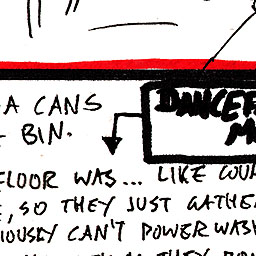 A CANS
BIN.
DANCEF
M
FLOOR WAS... LIKE COU
, SO THEY JUST GATHE
IOUSLY CAN'T POWER WASH